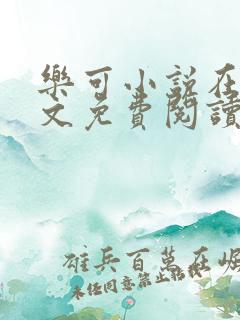 樂可小說在
文免費閱讀
雄兵百萬在崛
未經同意禁止轉載